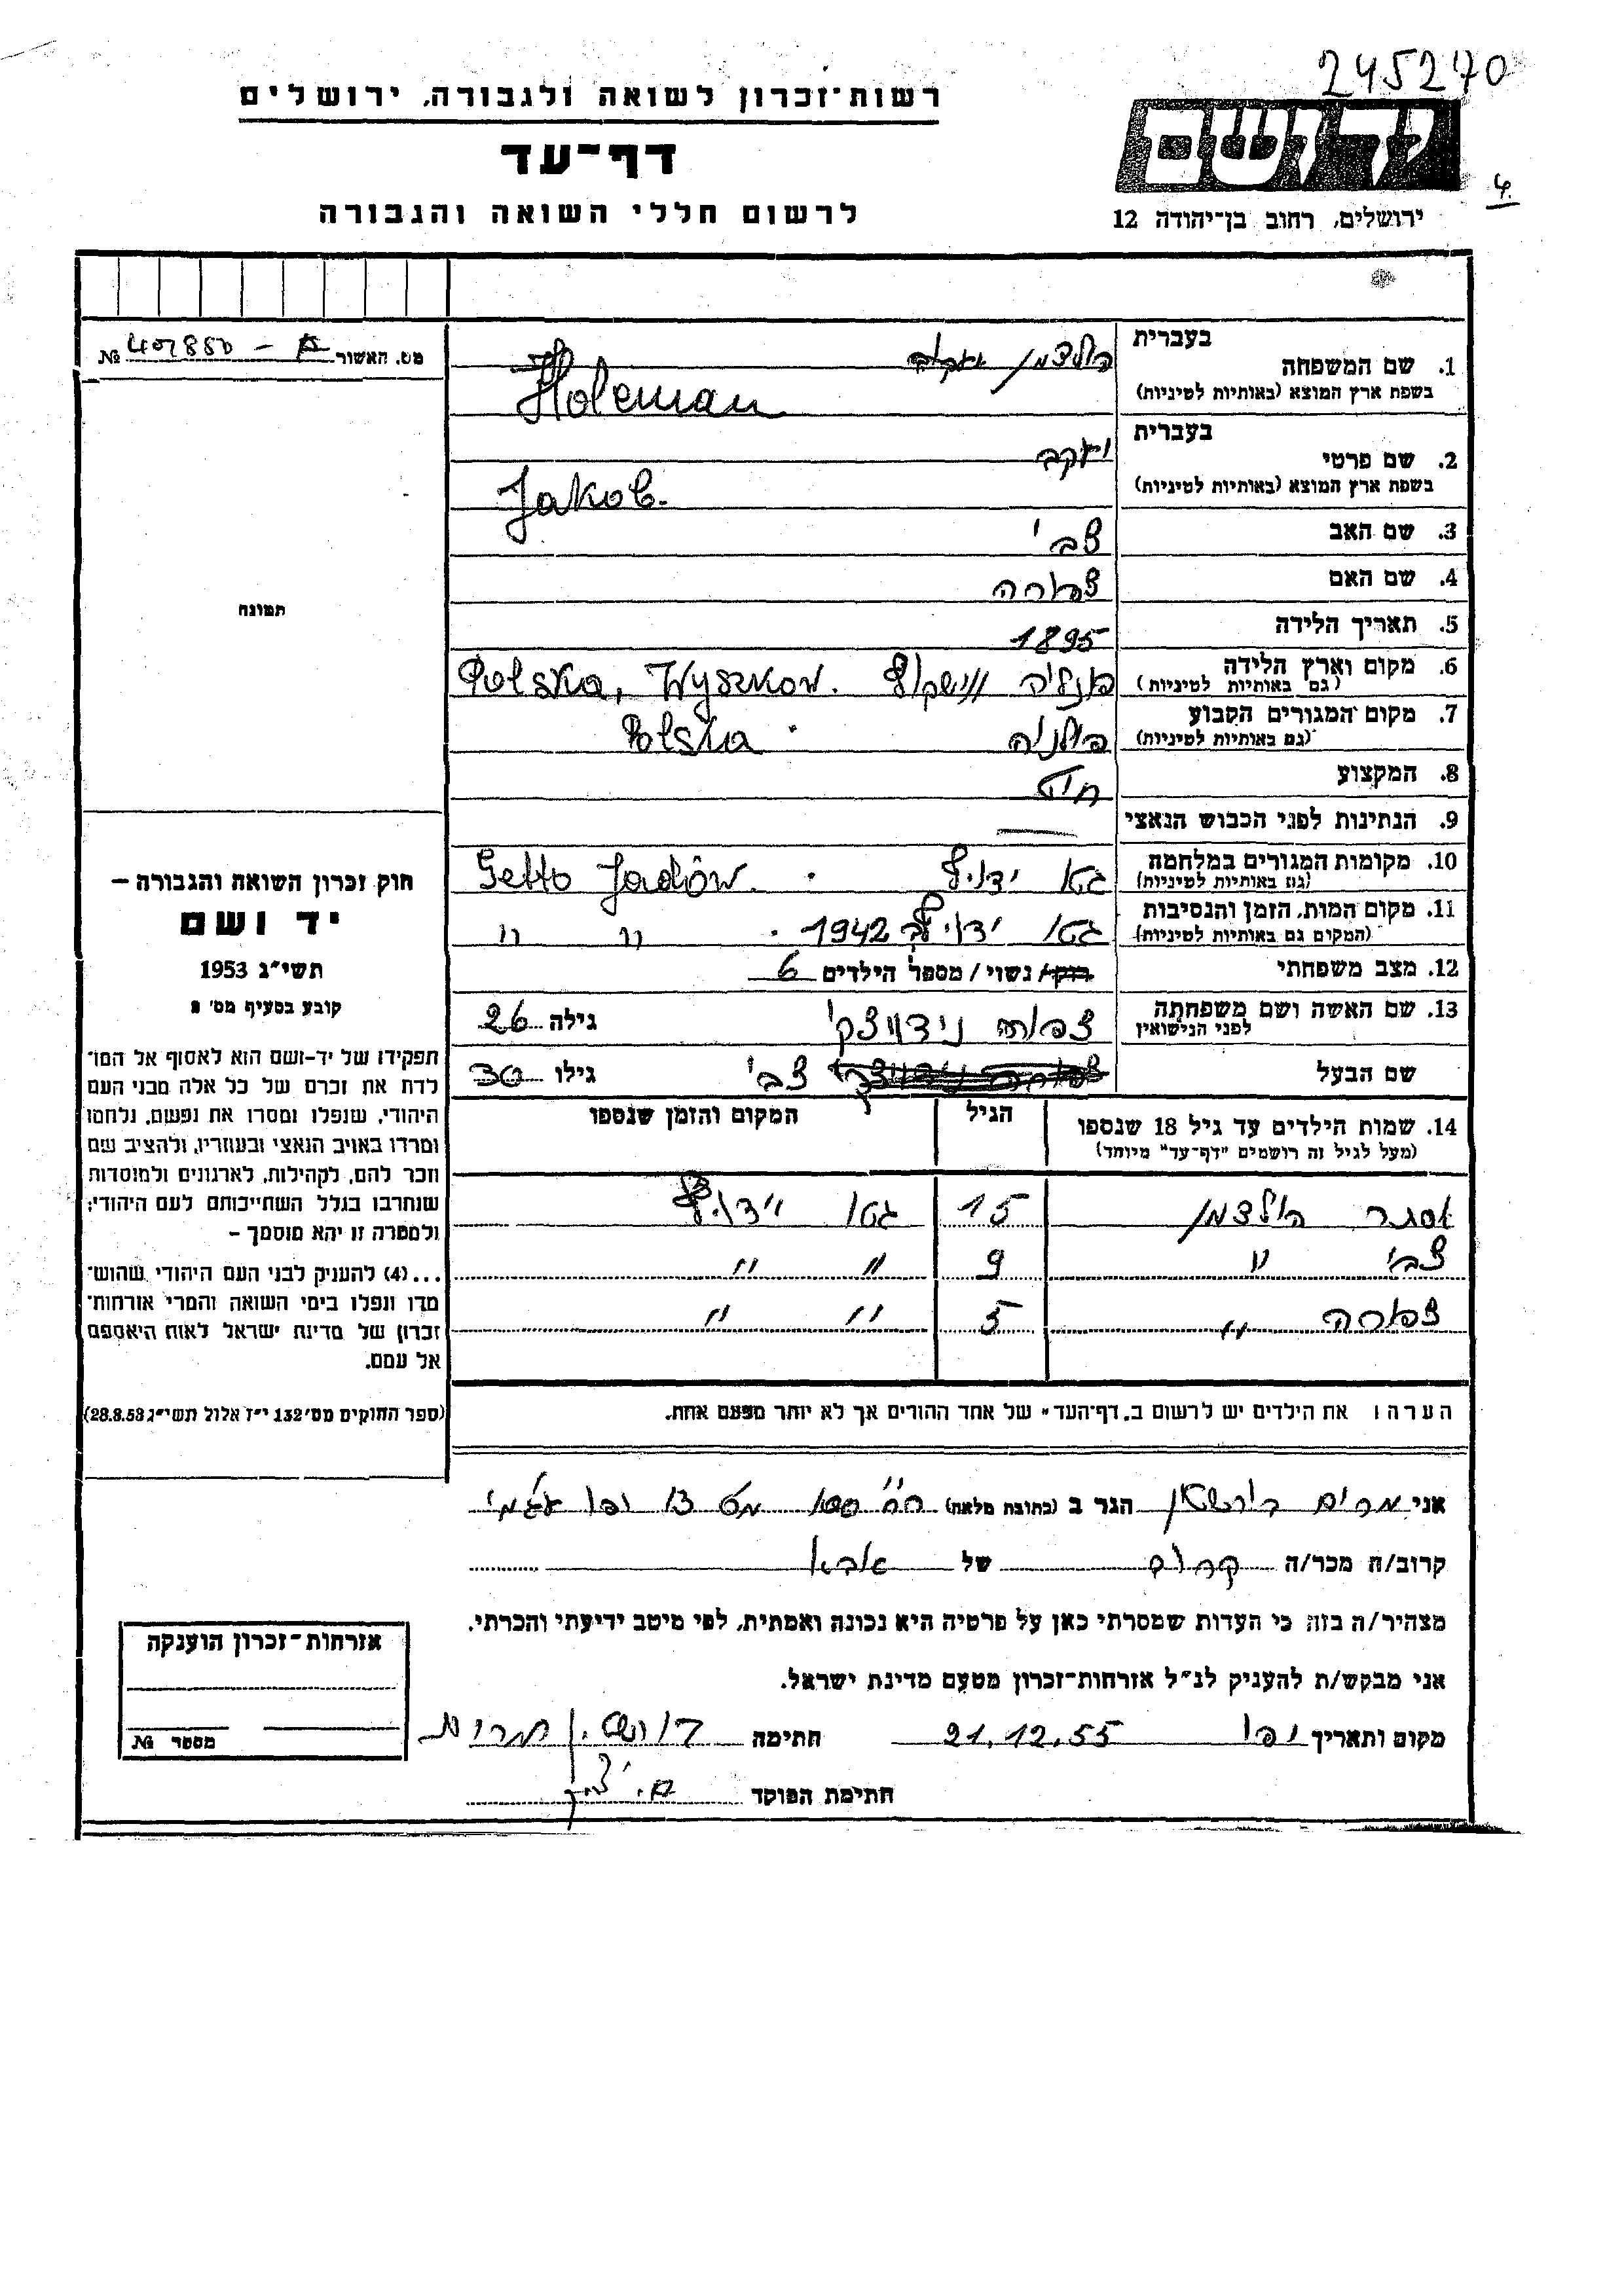 245270
רשות־זכרון לשואה ולגבורה, ירושלים
יד ושם
דף־עד
4.
לרשום חללי השואה והגבורה
ירושלים, רחוב בן־יהודה 12
מס. האשור № 407880 –
1. שם המשפחה בעברית הולצמן יעקב
בשפת ארץ המוצא (באותיות לטיניות) Holcman
2. שם פרטי בעברית יעקב
בשפת ארץ המוצא (באותיות לטיניות) Jakob.
3. שם האב צבי
4. שם האם צפורה
תמונה
5. תאריך הלידה 1895
6. מקום וארץ הלידה (גם באותיות לטיניות) פולניה ווישקוף Polska, Wyszkow.
7. מקום המגורים הקבוע (גם באותיות לטיניות) פולניה Polska
8. המקצוע חייט
9. הנתינות לפני הכבוש הנאצי —
10. מקומות המגורים במלחמה (גם באותיות לטיניות) גטו ידוב Getto Jadów.
11. מקום המות, הזמן והנסיבות (המקום גם באותיות לטיניות) גטו ידוב 1942. " "
12. מצב משפחתי רוק/ נשוי/ מספר הילדים 6
13. שם האשה ושם משפחתה לפני הנישואין צפורה גילה 26
שם הבעל צבי גילו 30
14. שמות הילדים עד גיל 18 שנספו (מעל לגיל זה רושמים "דף־עד" מיוחד) הגיל המקום והזמן שנספו
אסתר הולצמן 15 גטו ידוב
צבי " 9 " "
צפורה " 5 " "
הערה: את הילדים יש לרשום ב„דף־העד" של אחד ההורים אך לא יותר מפעם אחת.
חוק זכרון השואה והגבורה —
יד ושם
תשי"ג 1953
קובע בסעיף מס' 2
תפקידו של יד־ושם הוא לאסוף אל המו־
לדת את זכרם של כל אלה מבני העם
היהודי, שנפלו ומסרו את נפשם, נלחמו
ומרדו באויב הנאצי ובעוזריו, ולהציב שם
וזכר להם, לקהילות, לארגונים ולמוסדות
שנחרבו בגלל השתייכותם לעם היהודי;
ולמטרה זו יהא מוסמך —
...(4) להעניק לבני העם היהודי שהוש־
מדו ונפלו בימי השואה והמרי אזרחות־
זכרון של מדינת ישראל לאות היאספם
אל עמם.
(ספר החוקים מס' 132 י"ז אלול תשי"ג 28.8.53)
אני מרים הגר ב (כתובת מלאה) יפו
קרוב/ה מכר/ה קרוב של אבא
מצהיר/ה בזה כי העדות שמסרתי כאן על פרטיה היא נכונה ואמתית, לפי מיטב ידיעתי והכרתי.
אני מבקש/ת להעניק לנ"ל אזרחות־זכרון מטעם מדינת ישראל.
מקום ותאריך יפו 21.12.55 חתימה
חתימת הפוקד
אזרחות־זכרון הוענקה
מספר №